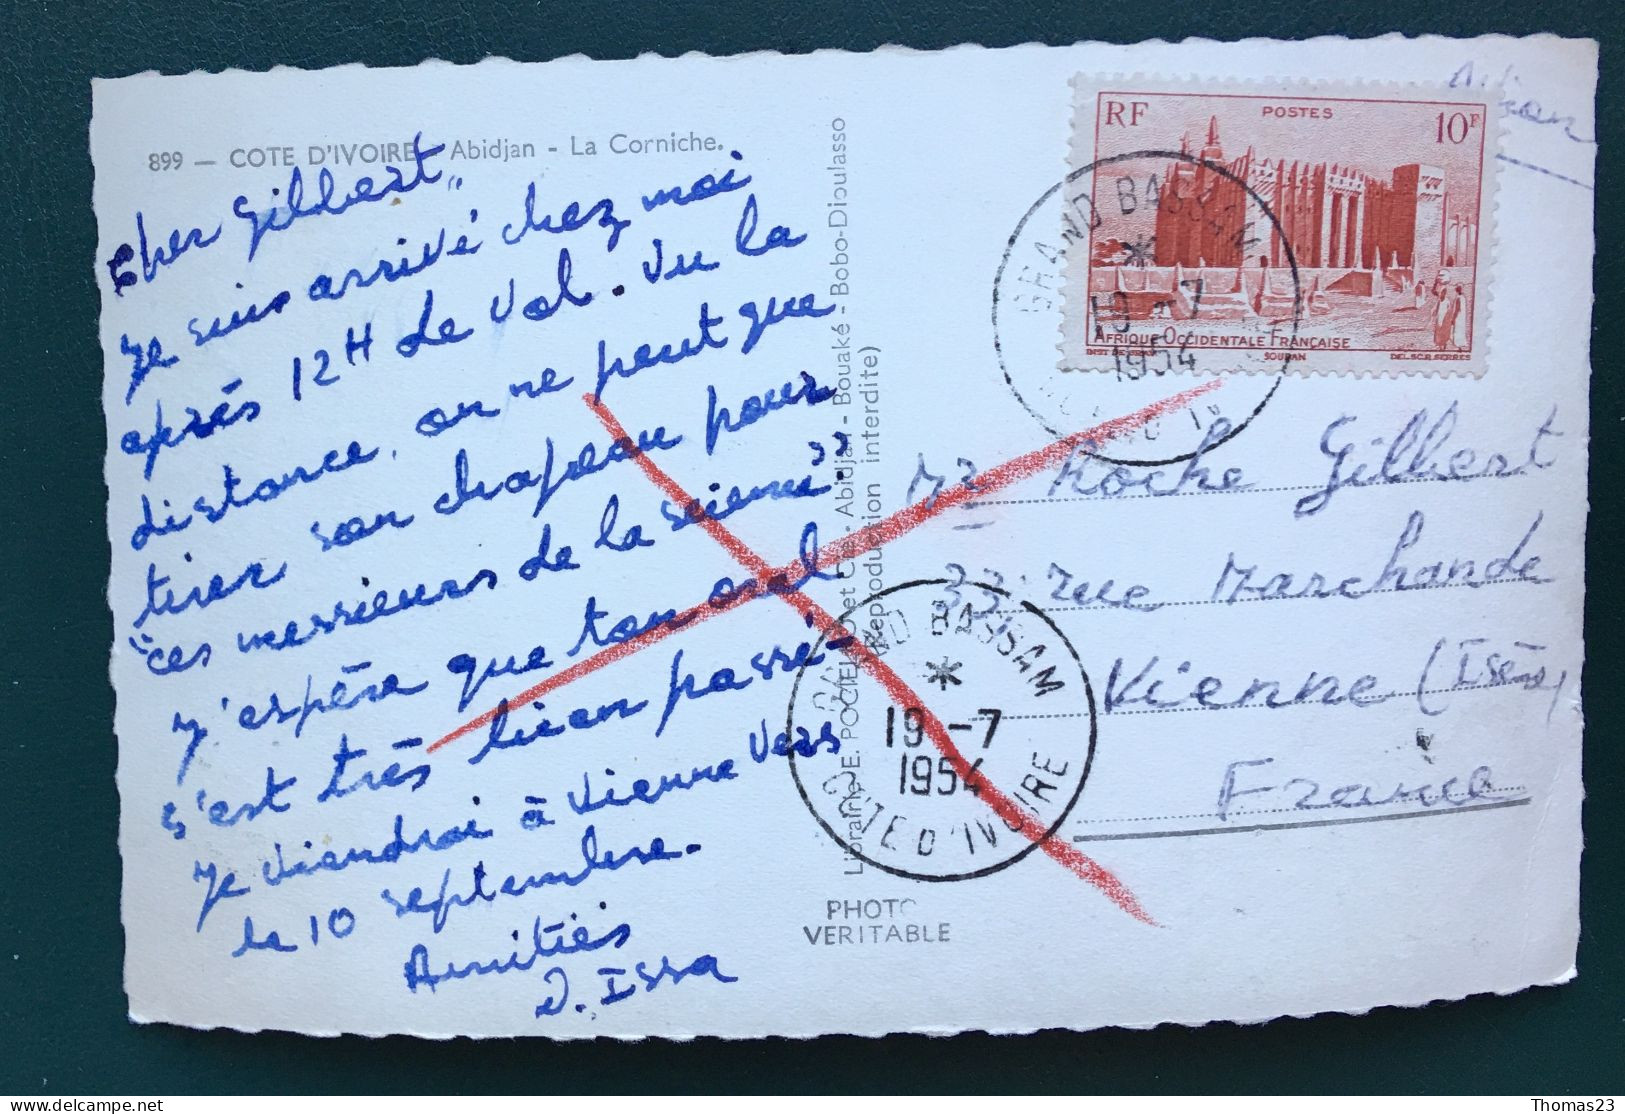 899 — COTE D'IVOIRE - Abidjan - La Corniche.
Cher Gilbert,
Je suis arrivé chez moi
après 12H de vol. Vu la
distance, on ne peut que
tirer son chapeau pour
"ces messieurs de la science"
J'espère que ton oral
s'est très bien passé -
Je viendrai à Vienne vers
le 10 septembre.
Amitiés
Issa
Librairie E. POCIELLO et Cie - Abidjan - Bouaké - Bobo-Dioulasso
(Reproduction interdite)
PHOTO
VERITABLE
RF
POSTES
10F
AFRIQUE OCCIDENTALE FRANÇAISE
SOUDAN
DEL.SC.R.SERRES
GRAND BASSAM
19 -7
1954
Mr Roche Gilbert
33 rue Marchande
Vienne (Isère)
France
GRAND BASSAM
19 -7
1954
COTE D'IVOIRE
delcampe.net
Thomas23